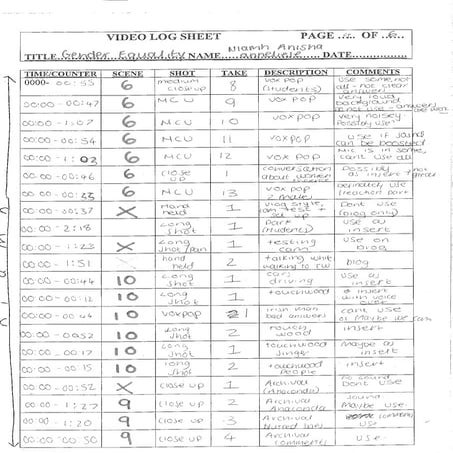 VIDEO LOG SHEET PAGE OF 6
TITLE Gender Equality NAME Niamh Anisha DATE
TIME/COUNTER SCENE SHOT TAKE DESCRIPTION COMMENTS
0000 - 00:55 6 medium close up 8 (students) use some not all - not clear answers
00:00 - 00:47 6 MCU 9 vox pop very loud background
00:00 - 1:07 6 MCU 10 vox pop very noisey
00:00 - 00:54 6 MCU 11 vox pop use if sound can be boosted
00:00 - 1:03 6 MCU 12 vox pop Mic is in some, cant use all
00:00 - 00:46 6 close up 1 conversation about women Possibly as insert
00:00 - 00:23 6 MCU 13 vox pop definately use (reaction part
00:00 - 00:37 X Hand held 1 Vlog style, set up Dont use (blog only)
00:00 - 2:18 long shot 1 Park (students) Use as insert
00:00 - 1:23 X Long shot/pan 1 testing cam use on blog
00:00 - 1:51 hand held 2 talking whilst walking to blog
00:00 - 00:44 10 long shot 1 cars driving use as insert
00:00 - 00:12 10 long shot 1 touchwood insert with voice over
00:00 - 00:44 10 voxpop 1 Irish man bad answers cant use or Maybe we can
00:00 - 0052 10 long shot 2 touch wood insert
00:00 - 00:17 10 long shot 1 touchwood singer Maybe as insert
00:00 - 00:15 10 long shot 2 touchwood People insert
00:00 - 00:52 X close up 1 Archival (Anaconda) no sound Dont use
00:00 - 1:27 9 close up 2 Archival Anaconda sound Maybe use.
00:00 - 1:20 9 close up 3 Archival use
00:00 00:50 9 close up 4 Archival (comments) use.